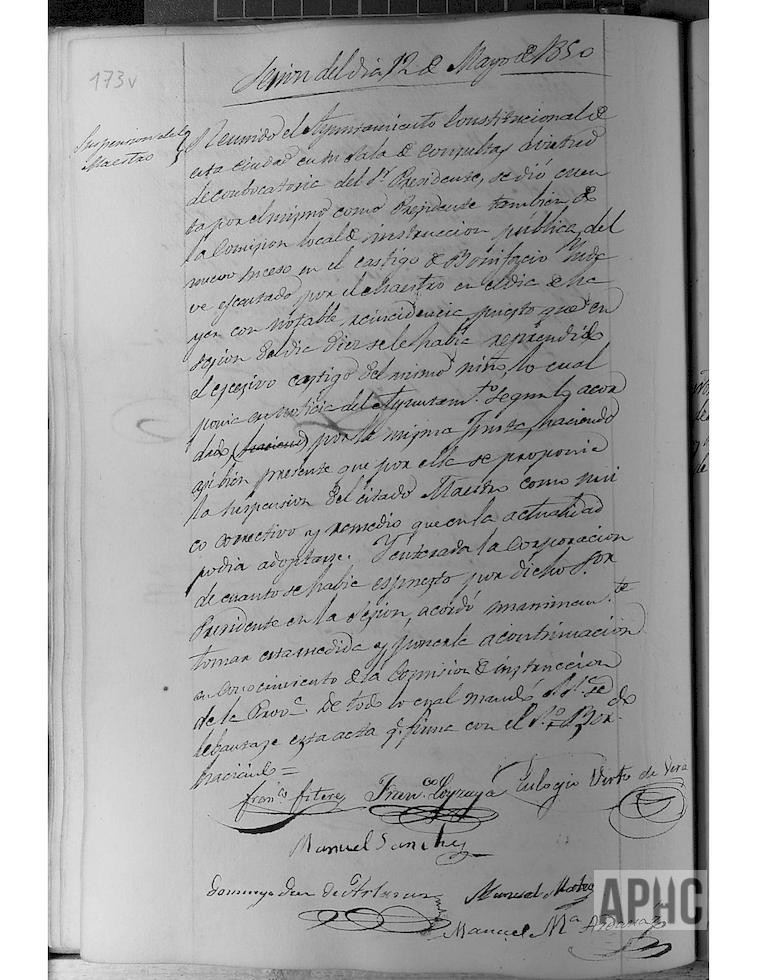 173v
Sesion del dia 12 de Mayo de 1850
Suspension del
Maestro
Reunido el Ayuntamiento Constitucional de
esta ciudad en su sala de consultas á virtud
de convocatoria del Sr. Presidente, se dió cuen
ta por el mismo como Presidente tambien de
la Comision local de instruccion pública, del
nuevo suceso en el castigo de Bonifacio
ve ejecutado por el Maestro en el dia de ha
yer con notable reincidencia, puesto que en
sesion del dia diez se le habia reprendido
el excesivo castigo del mismo niño, lo cual
ponia en noticia del Ayuntam.to segun lo acor
dado por la misma Junta, haciendo
asi bien presente que por ella se proponia
la suspension del citado Maestro como uni
co correctivo y remedio que en la actualidad
podia adoptarse. Y enterada la Corporacion
de cuanto se habia espuesto por dicho Sor
Presidente en la sesion, acordó unanimem.te
tomar esta medida y ponerla a continuacion
en conocimiento de la Comision de instruccion
de la Prov.a De todo lo cual mandó S. S.
lebantase esta acta q.e firma con el
haciendo =
Fran.co Fitere Fran.co Loyraga Eulogio Virto de Vera
Manuel Sanchez
Domingo Manuel Mateo
Manuel M.a
APHC